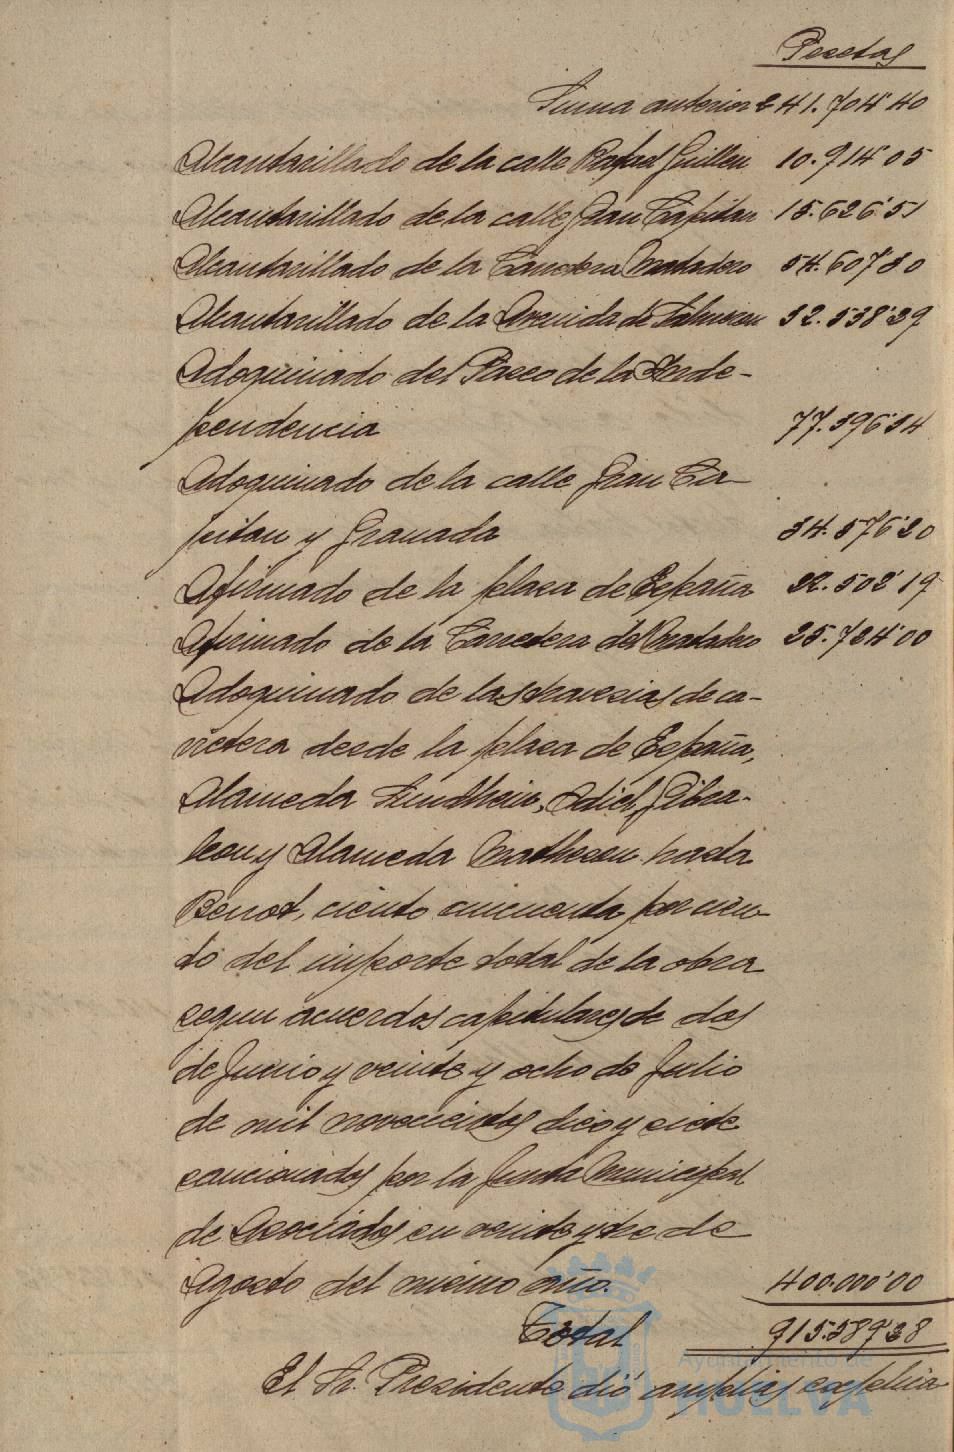 Pesetas
Suma anterior 241.704'40
Alcantarillado de la calle Rafael Guillen 10.914'05
Alcantarillado de la calle Gran Capitan 15.626'51
Alcantarillado de la Carretera Matadero 54.607'30
Alcantarillado de la Avenida de 32.538'39
Adoquinado del Paseo de la Inde-
pendencia 77.396'34
Adoquinado de la calle Gran Ca-
pitan y Granada 34.576'20
Afirmado de la plaza de España 22.502'19
Afirmado de la Carretera del Matadero 25.724'00
Adoquinado de las travesias de ca-
rretera desde la plaza de España,
Alameda Sundheim, Odiel, Gibra-
leon y Alameda Mathesen hasta
Berrot, ciento cincuenta por cien-
to del importe total de la obra
segun acuerdos capitulares de dos
de Junio y veinte y ocho de Julio
de mil novecientos diez y siete
sancionados por la Junta Municipal
de Asociados en veinte y tres de
Agosto del mismo año. 400.000'00
Total 915.589'38
El Sr. Presidente dió amplias explica
Ayuntamiento de
HUELVA